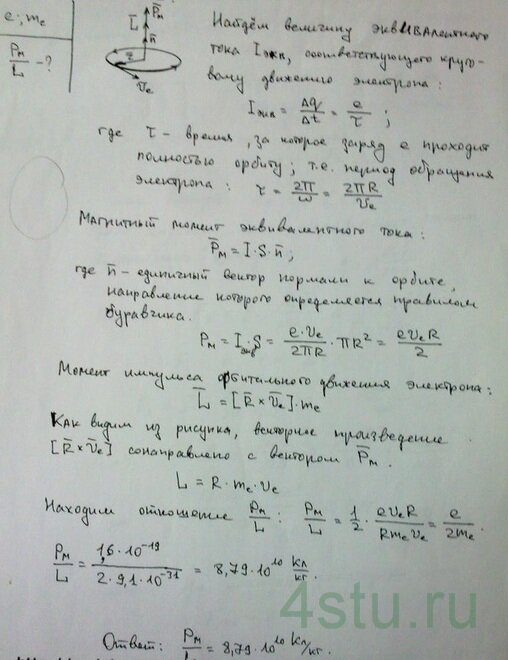 e; mₑ
Pₘ/L - ?
P̄ₘ
L̄
n̄
v̄ₑ
Найдём величину эквивалентного
тока Iэкв, соответствующего круго-
вому движению электрона:
Iэкв = Δq/Δt = e/τ ;
где τ - время, за которое заряд e проходит
полностью орбиту; т.е. период обращения
электрона: τ = 2π/ω = 2πR/vₑ
Магнитный момент эквивалентного тока:
P̄ₘ = I·S·n̄;
где n̄ - единичный вектор нормали к орбите,
направление которого определяется правилом
буравчика.
Pₘ = Iэкв·S = e·vₑ/2πR · πR² = evₑR/2
Момент импульса орбитального движения электрона:
L̄ = [R̄ × v̄ₑ]·mₑ
Как видим из рисунка, векторное произведение
[R̄ × v̄ₑ] сонаправлено с вектором P̄ₘ.
L = R·mₑ·vₑ
Находим отношение Pₘ/L : Pₘ/L = 1/2 · evₑR/Rmₑvₑ = e/2mₑ.
Pₘ/L = 1,6·10⁻¹⁹/2·9,1·10⁻³¹ = 8,79·10¹⁰ Кл/кг.
4stu.ru
Ответ: Pₘ/L = 8,79·10¹⁰ Кл/кг.